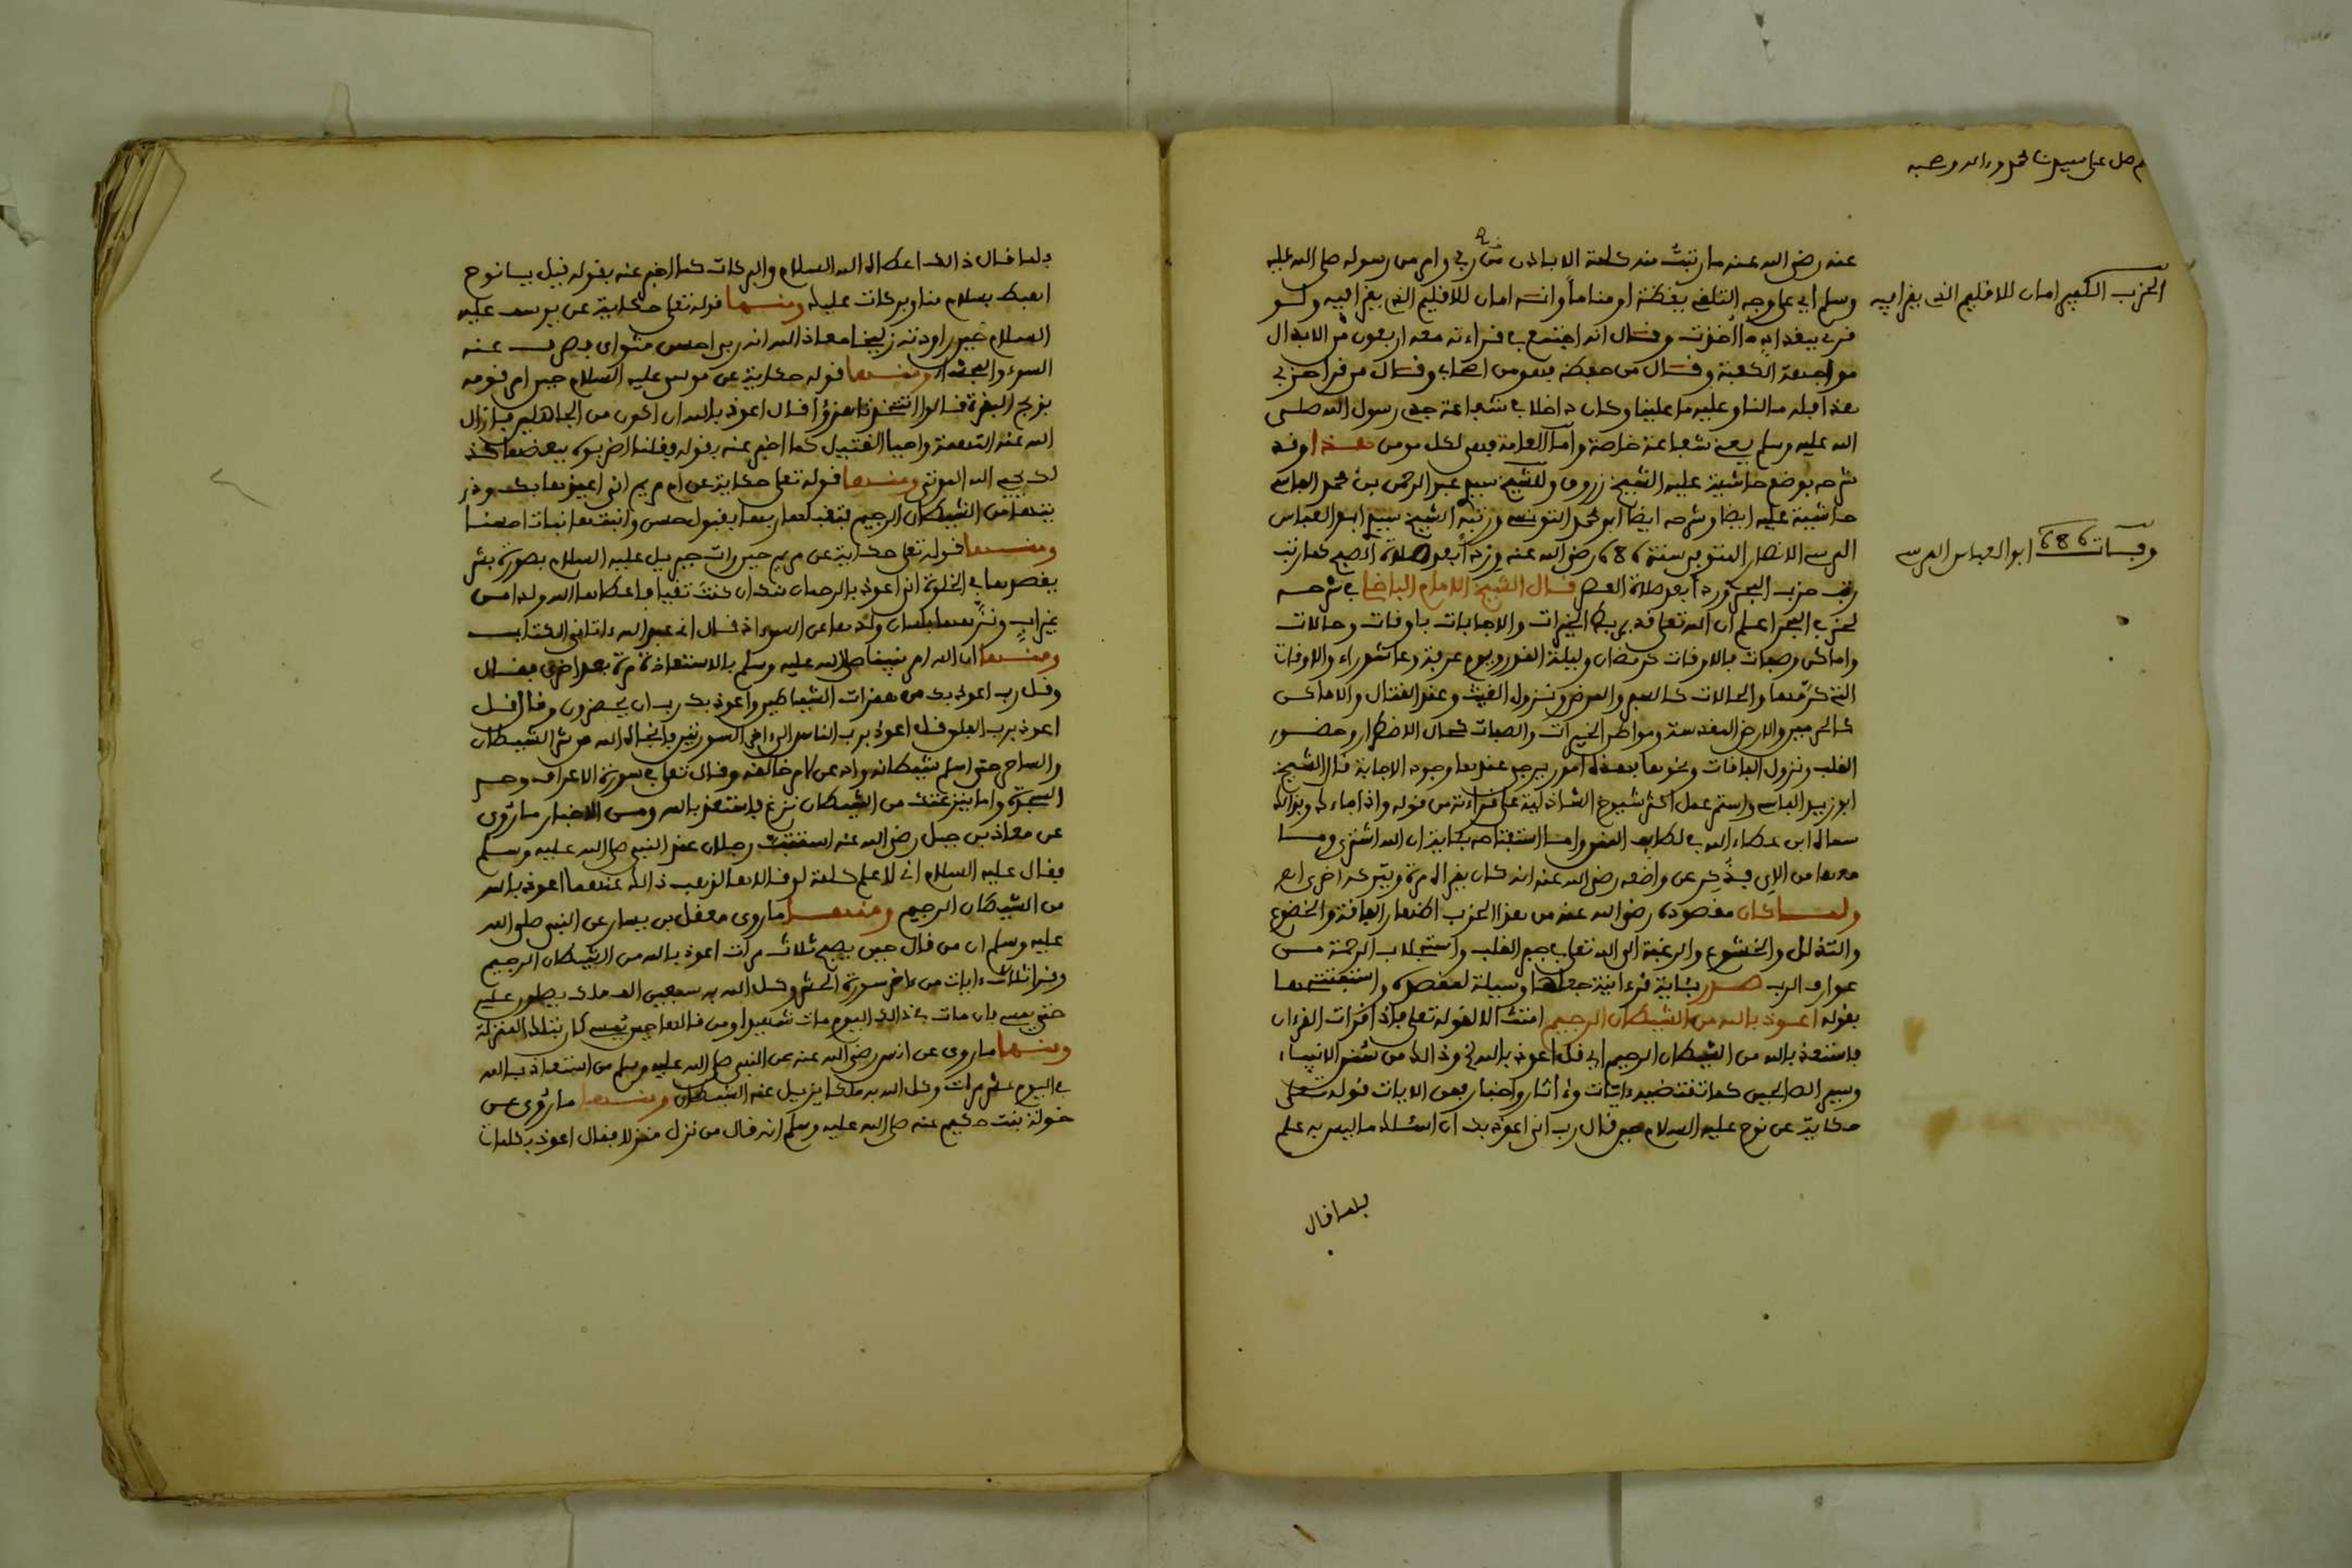 م صل على سيدنا محمد وءاله وصحبه
عنه رضي الله عنه ما رتبت منه كلمة الا باذن من ربي وامر من رسوله صلى الله عليه
وسلم اي على وجه التلقي يقظة او مناما وانه امان للاقليم الذي يقرا فيه ولو
الحزب الكبير امان للاقليم الذي يقرا فيه
قرئ ببغداد ما اخذت وقال انه اجتمع في قراءته معه اربعون من الابدال
مواجهة الكعبة وقال من حفظه فهو من اصحابي وقال من قرا حزبي
هذا فله ما لنا وعليه ما علينا وكان داخلا في شفاعة جدي رسول الله صلى
الله عليه وسلم يعني شفاعة خاصة واما العامة فهي لكل مومن هذا وقد
شرحه بوضع حاشية عليه الشيخ زروق وللشيخ سيدي عبد الرحمن بن محمد الفاسي
حاشية عليه ايضا وشرحه ايضا ابو محمد التونسي ورتبه الشيخ سيدي ابو العباس
المرسي الانصاري المتوفى سنة 686 رضي الله عنه وردا بعد صلاة الصبح كما رتب
وفات 686 ابو العباس المرسي
حزب البحر وردا بعد صلاة العصر قال الشيخ الامام في شرحه
لحزب البحر اعلم ان الله تعالى قد يربط الخيرات والاجابات باوقات وحالات
واماكن وصفات فالاوقات كرمضان وليلة القدر ويوم عرفة وعاشوراء والاوقات
التي والحالات كالسفر والمرض ونزول الغيث وعند القتال والاماكن
كالحرمين والارض المقدسة ومواطن الخيرات والصفات كحال الاضطرار وحضور
القلب ونزول الءافات ونحوها فهذه امور يرجى عندها وجود الاجابة قال الشيخ
ابو زيد الفاسي واستمر عمل اكثر شيوخ الشاذلية على قراءته من قوله واذا جاءك وبذلك
ابن عطاء الله في لطائف المنن واما استفتاحه بئاية ان الله اشترى وما
معها من الءاي فذكر عن واضعه رضي الله عنه انه كان يقراه مرة ويتركه اخرى اه
ولما كان مقصوده رضي الله عنه من هذا الحزب اظهار الفاقة والخضوع
والتذلل والخشوع والرغبة الى الله تعالى في جمع القلب واستجلاب الرحمة من
عوارف الرب صدر بئاية قرءانية جعلها وسيلة لمقصده واستفتحها
بقوله اعوذ بالله من الشيطان الرجيم امتثالا لقوله تعالى فاذا قرات القرءان
فاستعذ بالله من الشيطان الرجيم اي قل اعوذ بالله وذلك من سنن الانبياء
وسير الصالحين كما تقتضيه ءايات وءاثار واخبار فمن الايات قوله تعالى
حكاية عن نوح عليه السلام حين قال رب اني اعوذ بك ان اسئلك ما ليس به علم
فلما قال
فلما قال ذلك اعطاه الله السلام والبركات كما اخبر عنه بقوله قيل يا نوح
اهبط بسلام منا وبركات عليك ومنها قوله تعالى حكاية عن يوسف عليه
السلام حين راودته زليخا معاذ الله انه ربي احسن مثواي فصرف عنه
السوء والفحشاء ومنها قوله حكاية عن موسى عليه السلام حين امر قومه
بذبح البقرة قالوا اتتخذنا هزؤا قال اعوذ بالله ان اكون من الجاهلين فازال
الله عنه التهمة واحيا القتيل كما اخبر عنه بقوله فقلنا اضربوه ببعضها كذ
لك يحيي الله الموتى ومنها قوله تعالى حكاية عن ام مريم اني اعيذها بك وذر
يتها من الشيطان الرجيم فتقبلها ربها بقبول حسن وانبتها نباتا حسنا
ومنها قوله تعالى حكاية عن مريم حين رات جبريل عليه السلام بصورة بشر
يقصدها في الخلوة اني اعوذ بالرحمان منك ان كنت تقيا فاعطاها الله ولدا من
غير اب ونزهها بلسان ولدها عن السوء اذ قال اني عبد الله ءاتاني الكتاب
ومنها ان الله امر نبينا صلى الله عليه وسلم بالاستعاذة مرة بعد اخرى فقال
وقل رب اعوذ بك من همزات الشياطين واعوذ بك رب ان يحضرون وقال قل
اعوذ برب الفلق قل اعوذ برب الناس الى ءاخر السورتين فانجاه الله من شر الشيطان
والساحر حتى اسلم شيطانه وقال تعالى في سورة الاعراف وحم
السجدة واما ينزغنك من الشيطان نزغ فاستعذ بالله ومن الاخبار ما روى
عن معاذ بن جبل رضي الله عنه استب رجلان عند النبي صلى الله عليه وسلم
فقال عليه السلام اني لاعلم كلمة لو قالاها لذهب ذلك عنهما اعوذ بالله
من الشيطان الرجيم ومنها ما روى معقل بن يسار عن النبي صلى الله
عليه وسلم ان من قال حين يصبح ثلاث مرات اعوذ بالله من الشيطان الرجيم
وقرا ثلاث ءايات من ءاخر سورة الحشر وكل الله به سبعين الف ملك يصلون عليه
حتى يمسي فان مات في ذلك اليوم مات شهيدا ومن قالها حين يمسي كان بتلك المنزلة
ومنها ما روى عن انس رضي الله عنه عن النبي صلى الله عليه وسلم من استعاذ بالله
في اليوم عشر مرات وكل الله به ملكا يزيل عنه الشيطان ومنها ما روي عن
خولة بنت حكيم عنه صلى الله عليه وسلم انه قال من نزل منزلا فقال اعوذ بكلمات